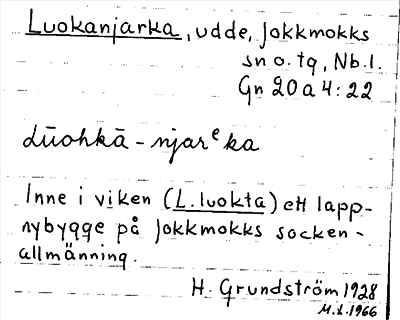 Luokanjarka, udde, Jokkmokks
sn o. tg, Nb.l.
Gn 20 a 4:22
lūohkā-njarᵉka
Inne i viken (L.luokta) ett lapp-
nybygge på Jokkmokks socken-
allmänning.
H. Grundström 1928